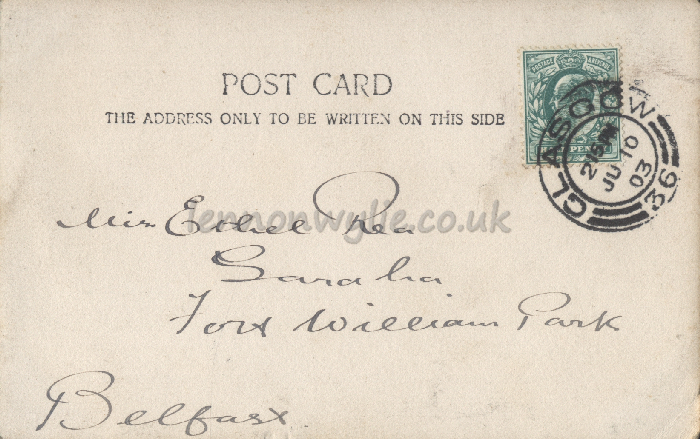 POST CARD
THE ADDRESS ONLY TO BE WRITTEN ON THIS SIDE
POSTAGE
GLASGOW
2 15 PM
JU 10
03
36
Miss Ethel Rea
lennonwylie.co.uk
Saraha
Fort William Park
Belfast